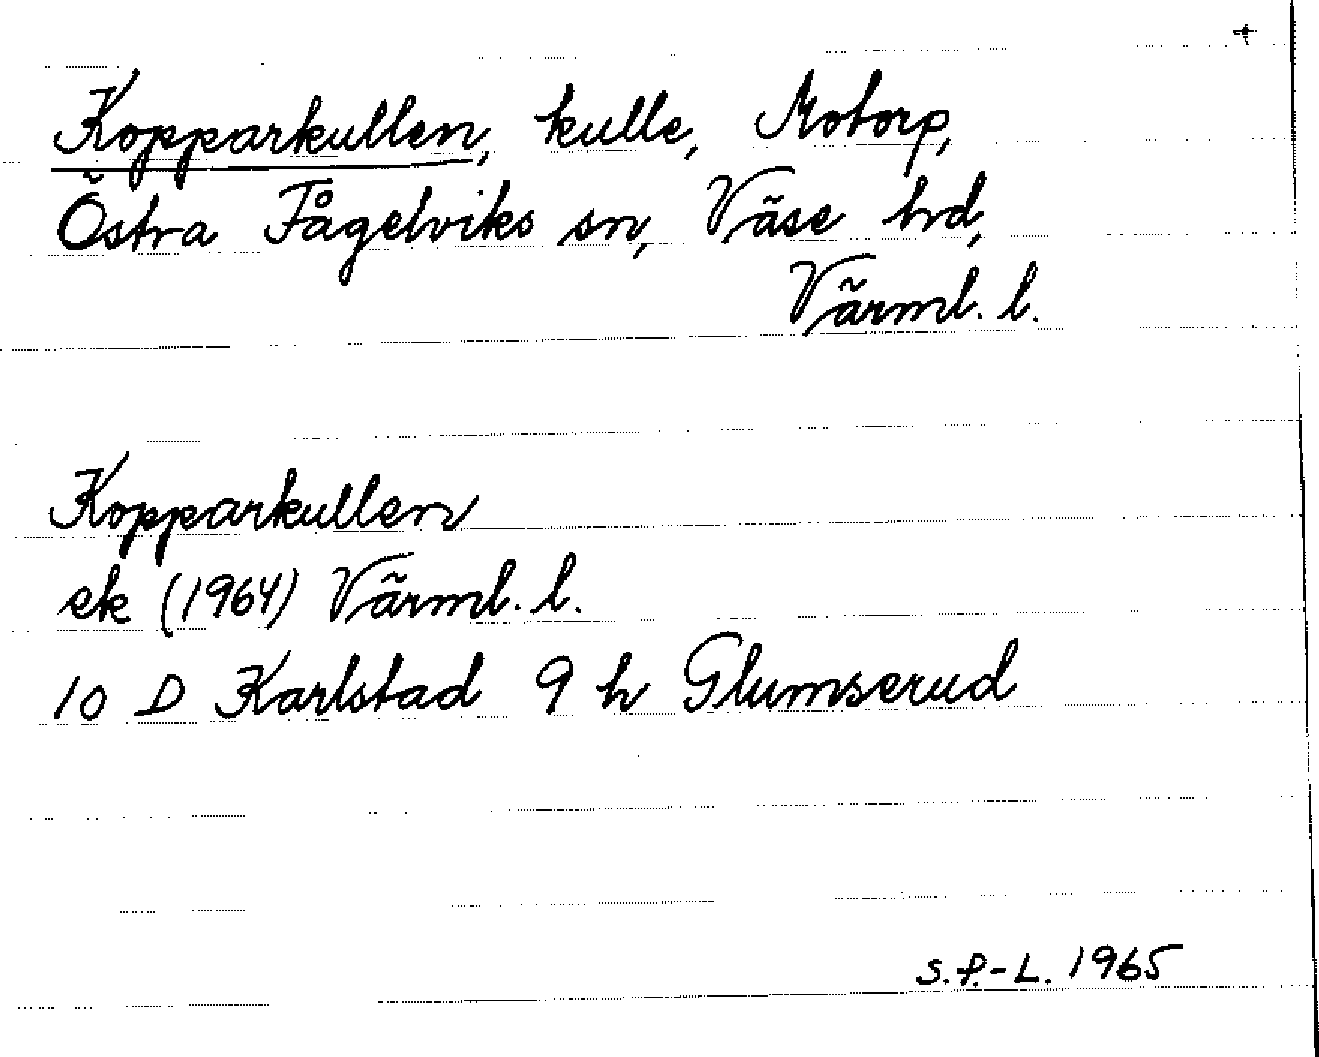 Kopparkullen, kulle, Motorp,
Östra Fågelviks sn, Väse hd,
Värml. l.
Kopparkullen
ek (1964) Värml. l.
10 D Karlstad 9 h Glumserud
S.P.-L. 1965